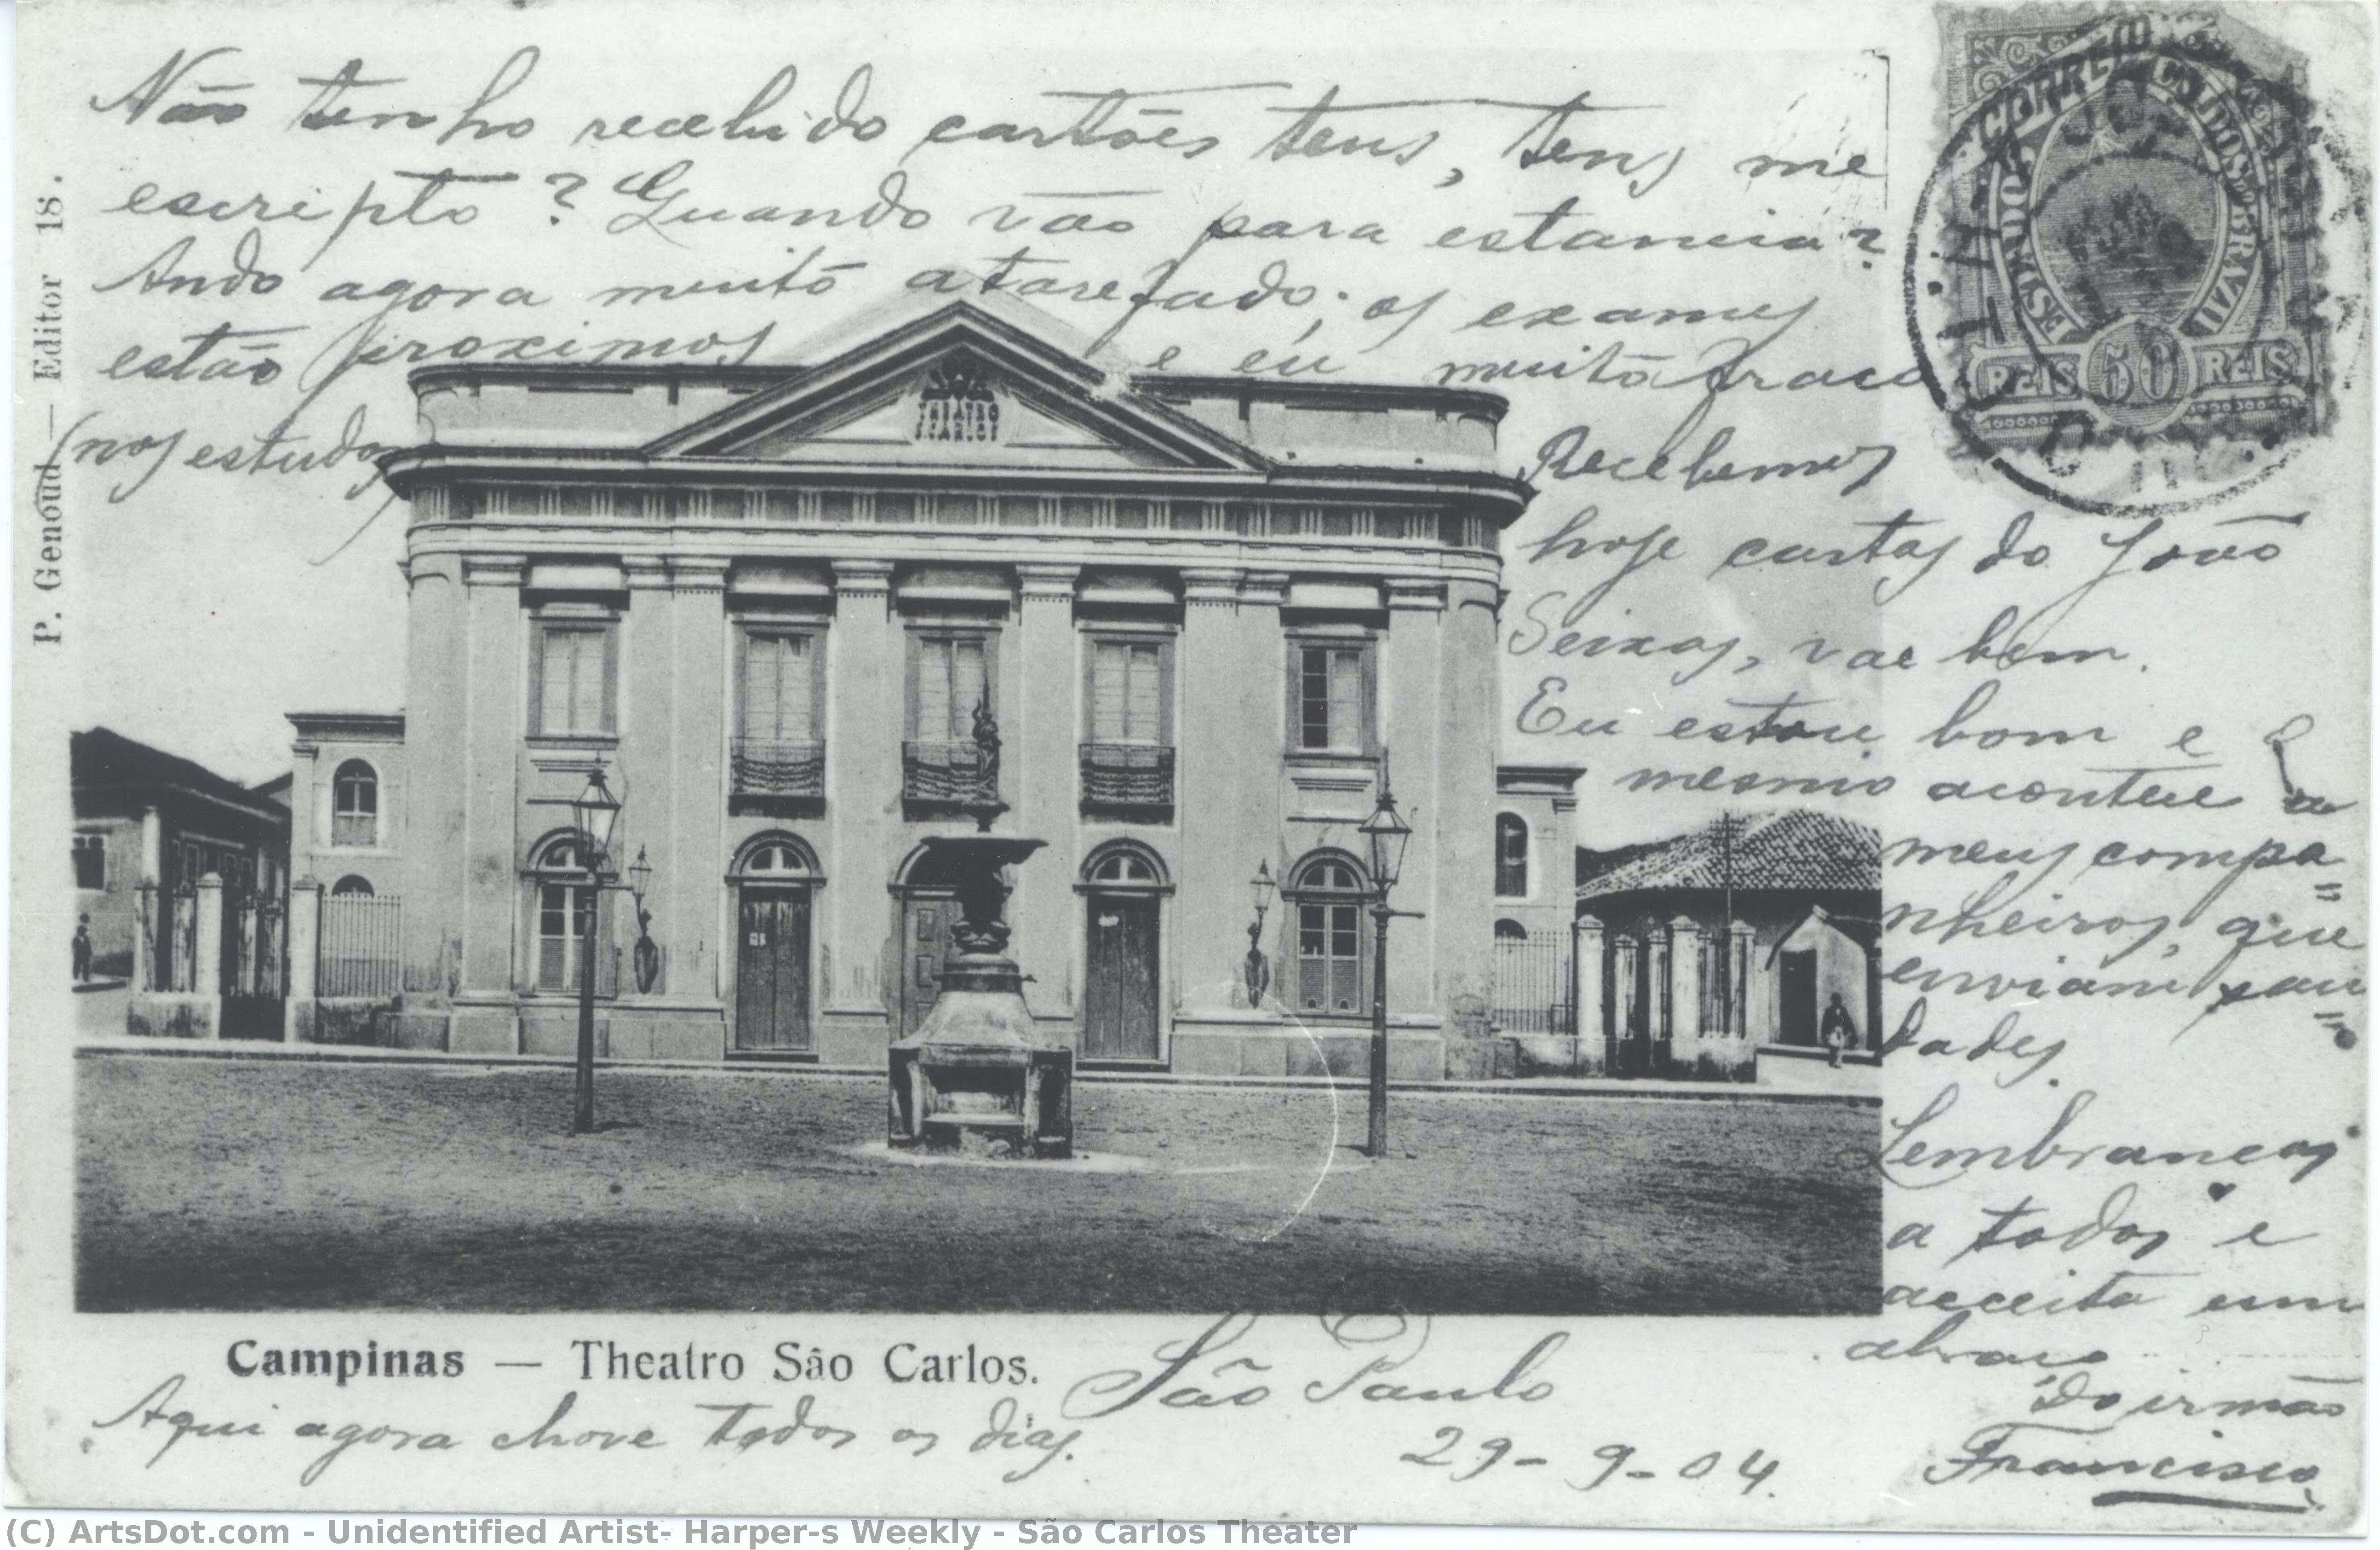 Não tenho recebido cartões teus, tens me
escripto? Quando vão para estancia?
Ando agora muito atarefado; os exames
estão proximos e eu muito fraco
(nos estudos)
Recebemos
hoje cartas do João
Seixas, vae bem.
Eu estou bom e o
mesmo acontece a
meus compa
nheiros, que
enviam sau
dades.
Lembranças
a todos e
acceita um
abraço
do irmão
Francisco
P. Genoud — Editor 18.
CORREIO
ESTADOS UNIDOS DO BRAZIL
REIS 50 REIS
THEATRO
S. CARLOS
Campinas — Theatro São Carlos.
Aqui agora chove todos os dias.
São Paulo
29-9-04.
(C) ArtsDot.com - Unidentified Artist- Harper-s Weekly - São Carlos Theater